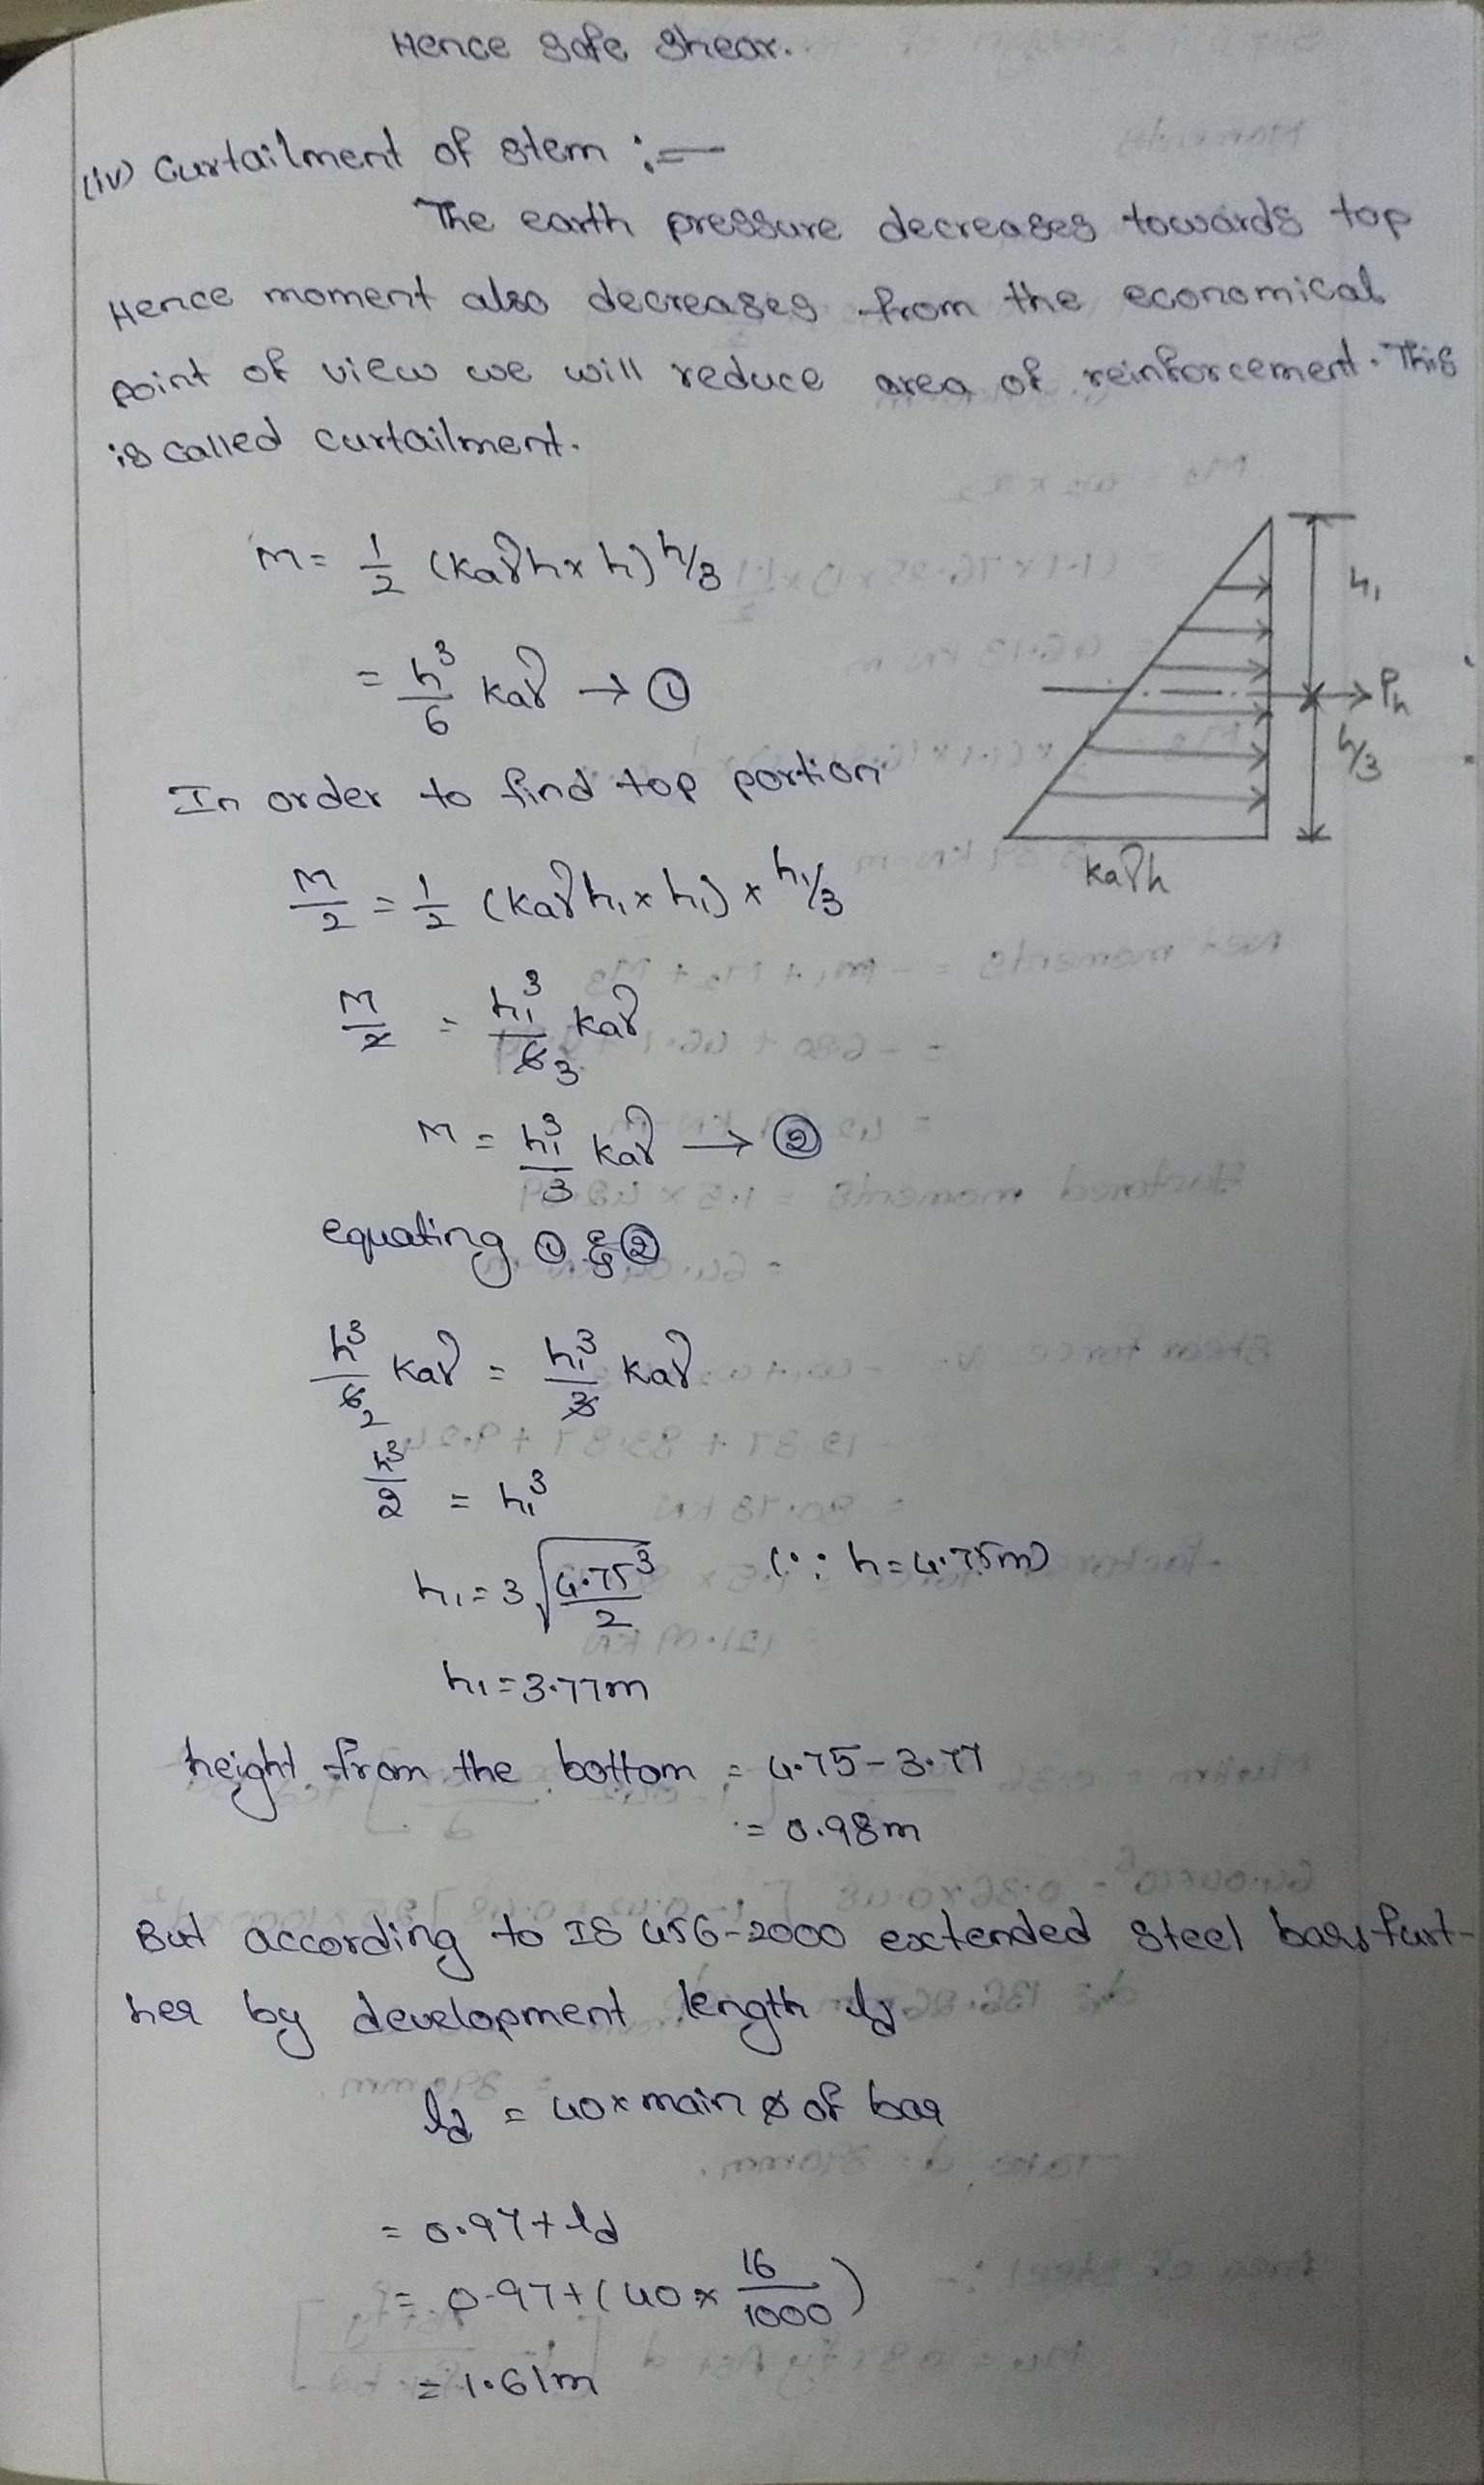 Hence safe shear.
(iv) Curtailment of stem :-
The earth pressure decreases towards top
Hence moment also decreases from the economical
point of view we will reduce area of reinforcement. This
is called curtailment.
M = 1/2 (kaγh x h) h/3
= h³/6 kaγ → ①
h₁
Ph
h/3
kaγh
In order to find top portion
M/2 = 1/2 (kaγh₁ x h₁) x h₁/3
M/2 = h₁³/6 3 kaγ
M = h₁³/3 kaγ → ②
equating ① & ②
h³/6 2 kaγ = h₁³/3 kaγ
h³/2 = h₁³
h₁ = 3√4.75³/2 (∵ h = 4.75m)
h₁ = 3.77m
height from the bottom = 4.75 - 3.77
= 0.98m
But according to IS 456-2000 extended steel bars furt-
her by development length ld
ld = 40 x main ø of bar
= 0.97 + ld
= 0.97 + (40 x 16/1000)
= 1.61m